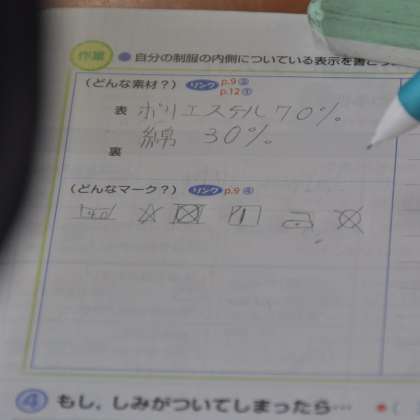 作業 ● 自分の制服の内側についている表示を書こう
(どんな素材?) リンク p.9 ③
p.12 ①
表 ポリエステル 70%
綿 30%
裏
(どんなマーク?) リンク p.9 ④
40
④ もし、しみがついてしまったら…